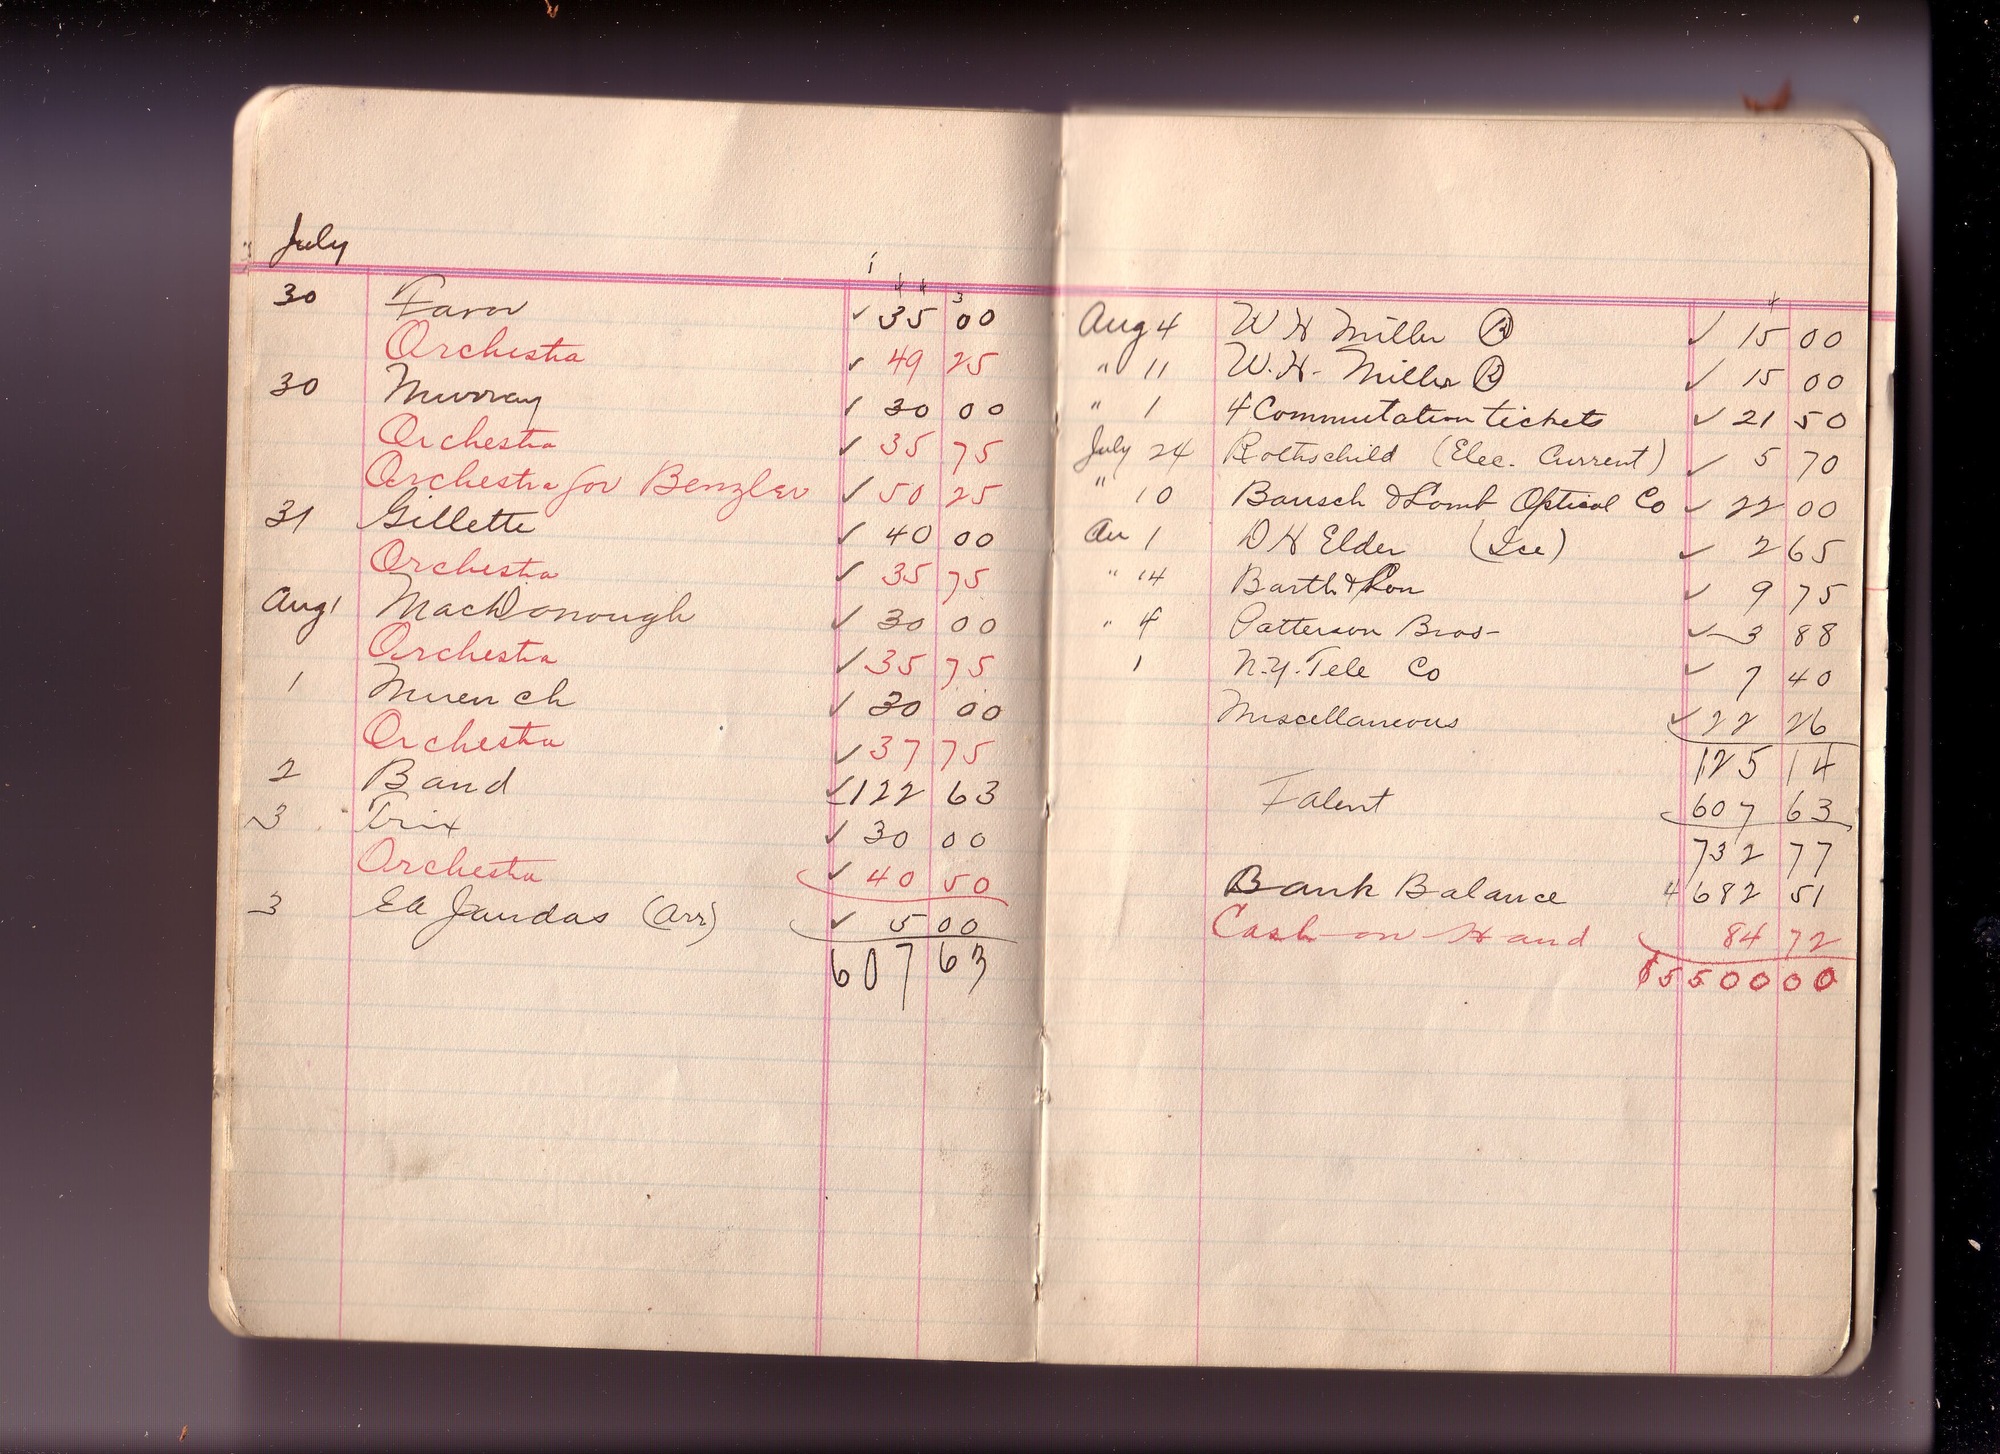 July
30 Favor ✓ 35 00
Orchestra ✓ 49 25
30 Murray ✓ 30 00
Orchestra ✓ 35 75
Orchestra for Benzler ✓ 50 25
31 Gillette ✓ 40 00
Orchestra ✓ 35 75
Aug 1 MacDonough ✓ 30 00
Orchestra ✓ 35 75
1 Muench ✓ 30 00
Orchestra ✓ 37 75
2 Band ✓ 122 63
3 Trix ✓ 30 00
Orchestra ✓ 40 50
3 Ed Jandas (Arr) ✓ 5 00
607 63
Aug 4 W H Miller Ⓡ ✓ 15 00
" 11 W. H. Miller Ⓡ ✓ 15 00
" 1 4 Commutation tickets ✓ 21 50
July 24 Rothschild (Elec. Current) ✓ 5 70
" 10 Bausch & Lomb Optical Co ✓ 22 00
Au 1 D H Elder (Ice) ✓ 2 65
" 14 Barth & Son ✓ 9 75
" 4 Patterson Bros- ✓ 3 88
1 N.Y. Tele Co ✓ 7 40
Miscellaneous ✓ 22 26
125 14
Talent 607 63
732 77
Bank Balance 4682 51
Cash on Hand 84 72
$5500 00